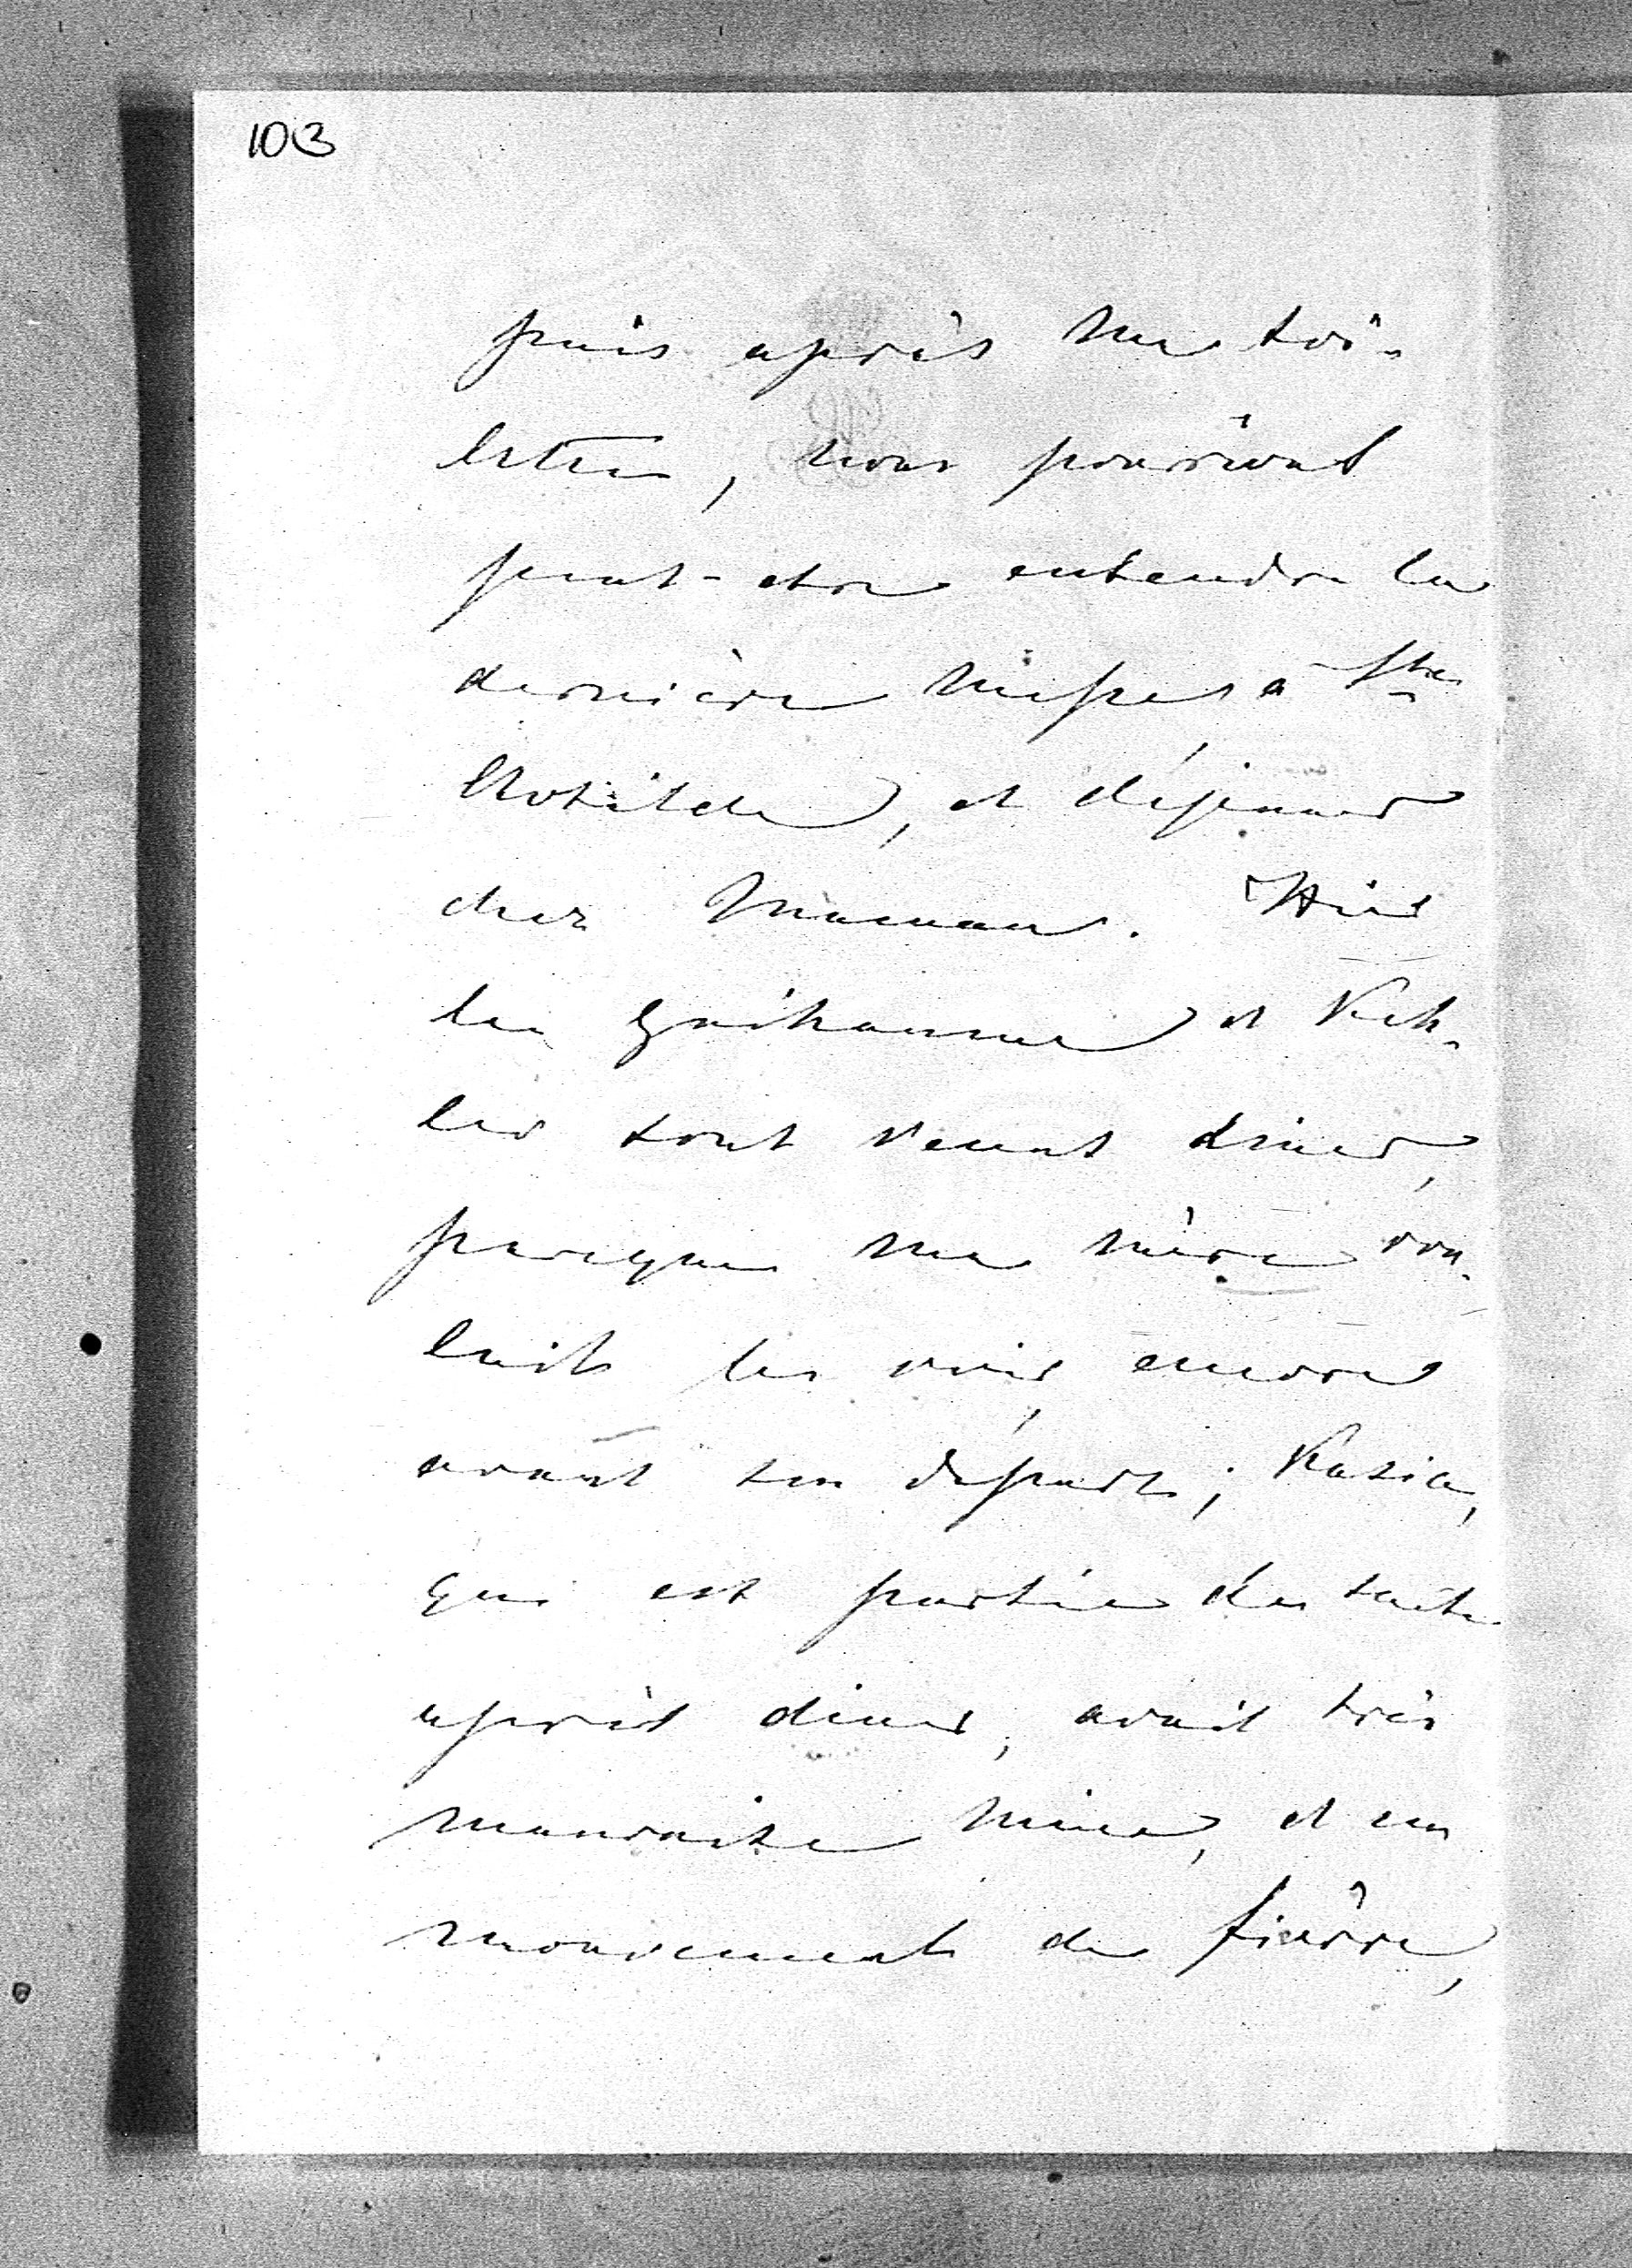 103
puis après ma toi-
lette, nous pourrions
peut-etre entendre la
dernière messe à Ste
Clotilde, et déjeuner
chez Maman. Hier
les et Keh-
ler sont venus diner,
parceque ma mère vou-
lait les voir encore
avant son départ; Kasia,
qui est partie de suite
après diner, avait très
mauvaise mine, et un
mouvement de fièvre,